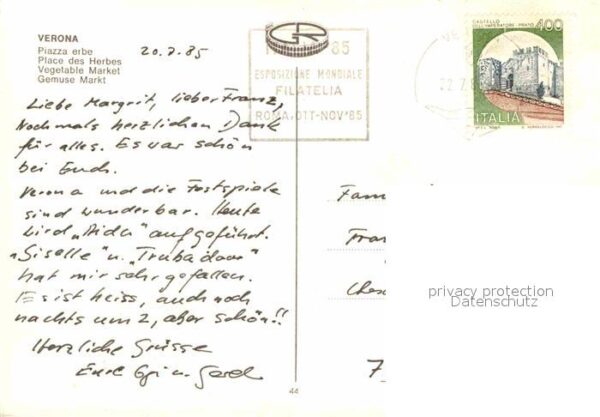 VERONA
Piazza erbe
Place des Herbes
Vegetable Market
Gemuse Markt
20.7.85
Liebe Margrit, lieber Franz,
Nochmals herzlichen Dank
für alles. Es war schön
bei Euch.
Verona und die Festspiele
sind wunderbar. Heute
wird „Aida" aufgeführt.
„Giselle" u. „Trubadour"
hat mir sehr gefallen.
Es ist heiss, auch noch
nachts um 2, aber schön!!
Herzliche Grüsse
Eure
44
85
ESPOSIZIONE MONDIALE
FILATELIA
ROMA, OTT-NOV '85
22.7.8
CASTELLO
DELL'IMPERATORE - PRATO
400
ITALIA
Fam
Fran
7
privacy protection
Datenschutz